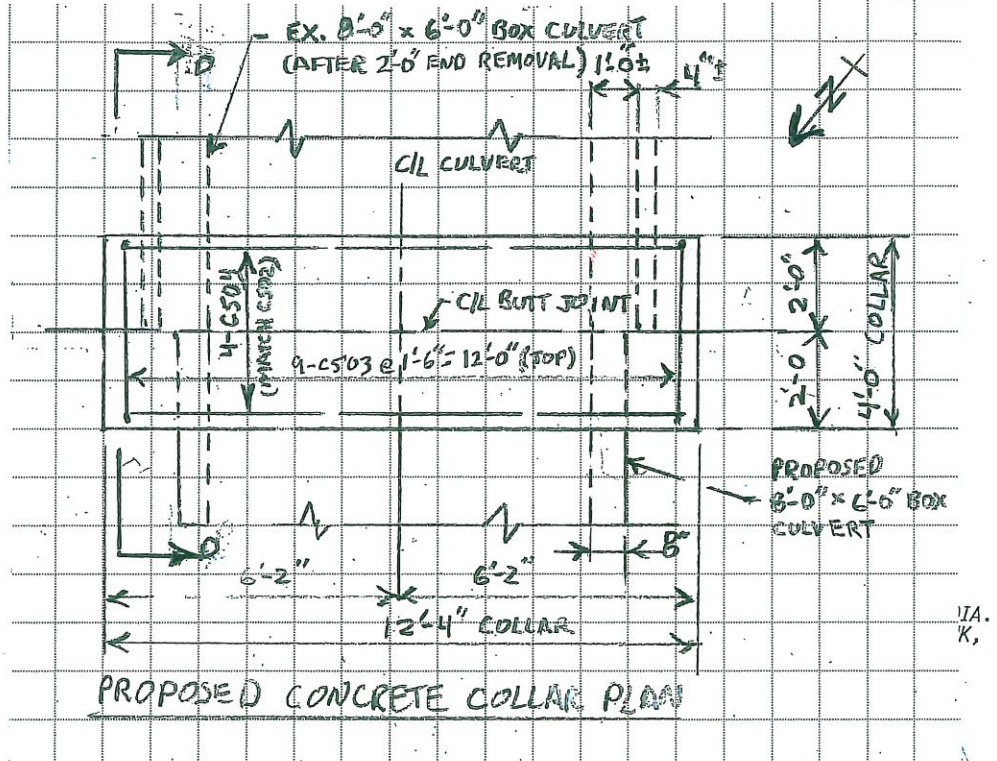 EX. 8'-0" x 6'-0" BOX CULVERT
(AFTER 2'-0" END REMOVAL) 1'-0"±
4"±
D
N
C/L CULVERT
4-C504
(MATCH C502)
C/L BUTT JOINT
9-C503 @ 1'-6" = 12'-0" (TOP)
2'-0"
2'-0
4'-0" COLLAR
PROPOSED
8'-0" x 6'-0" BOX
CULVERT
D
8"
6'-2"
6'-2"
12'-4" COLLAR
IA.
K,
PROPOSED CONCRETE COLLAR PLAN